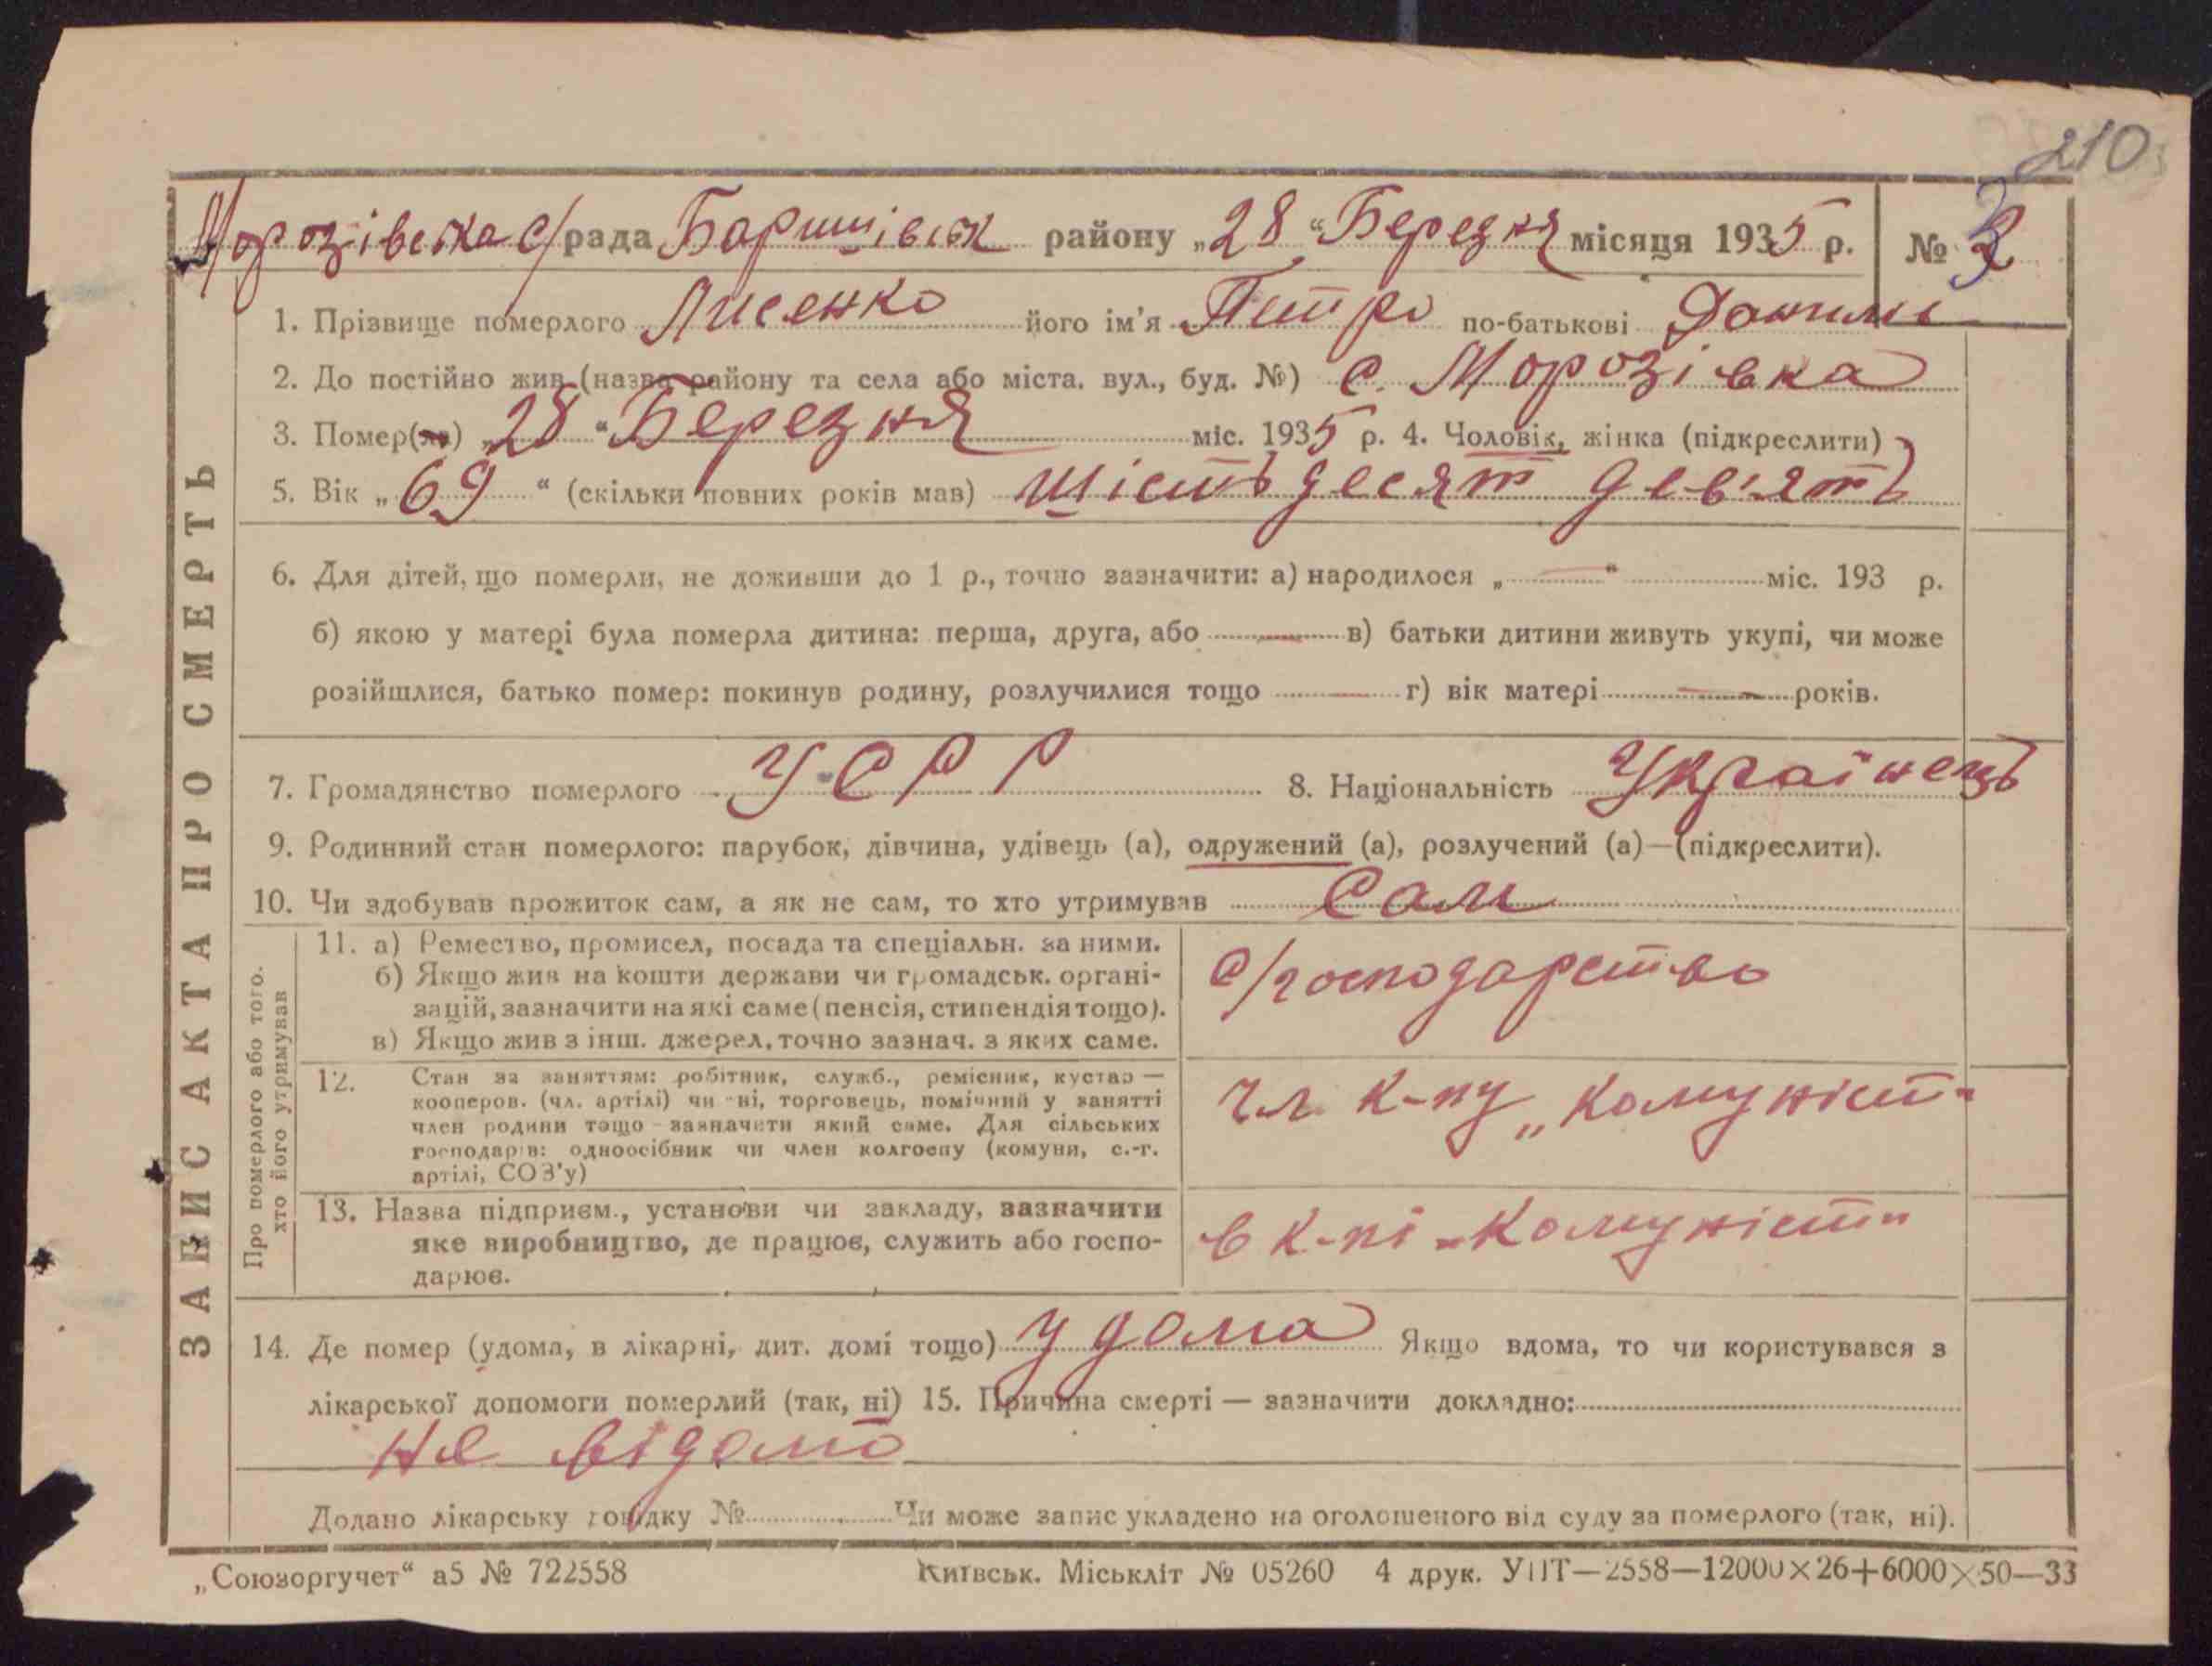 210
Морозівська с/рада Баришівськ району „28“ Березня місяця 1935 р. № 3
1. Прізвище померлого Лисенко його ім'я Петро по-батькові Данил
2. До постійно жив (назва району та села або міста, вул., буд. №) с. Морозівка
3. Помер(ла) „28“ Березня міс. 1935 р. 4. Чоловік, жінка (підкреслити)
5. Вік „69“ (скільки повних років мав) шістьдесят дев'ять
6. Для дітей, що померли, не доживши до 1 р., точно зазначити: а) народилося „—“ міс. 193 р.
б) якою у матері була померла дитина: перша, друга, або — в) батьки дитини живуть укупі, чи може
розійшлися, батько помер: покинув родину, розлучилися тощо — г) вік матері — років.
7. Громадянство померлого УСРР 8. Національність Українець
9. Родинний стан померлого: парубок, дівчина, удівець (а), одружений (а), розлучений (а)—(підкреслити).
10. Чи здобував прожиток сам, а як не сам, то хто утримував Сам
11. а) Ремество, промисел, посада та спеціальн. за ними.
б) Якщо жив на кошти держави чи громадськ. органі-
зацій, зазначити на які саме (пенсія, стипендія тощо).
в) Якщо жив з інш. джерел, точно зазнач. з яких саме.
с/господарство
12. Стан за заняттям: робітник, служб., ремісник, кустар —
кооперов. (чл. артілі) чи ні, торговець, помічний у занятті
член родини тощо - зазначити який саме. Для сільських
господарів: одноосібник чи член колгоспу (комуни, с.-г.
артілі, СОЗ'у)
чл к-пу „Комуніст"
13. Назва підприєм., установи чи закладу, зазначити
яке виробництво, де працює, служить або госпо-
дарює.
в к-пі „Комуніст"
14. Де помер (удома, в лікарні, дит. домі тощо) у дома Якщо вдома, то чи користувався з
лікарської допомоги померлий (так, ні) 15. Причина смерті — зазначити докладно:
не відомо
Додано лікарську довідку № Чи може запис укладено на оголошеного від суду за померлого (так, ні).
„Союзоргучет“ а5 № 722558 Київськ. Міськліт № 05260 4 друк. УПТ—2558—12000×26+6000×50—33
ЗАПИС АКТА ПРО СМЕРТЬ
Про померлого або того.
хто його утримував